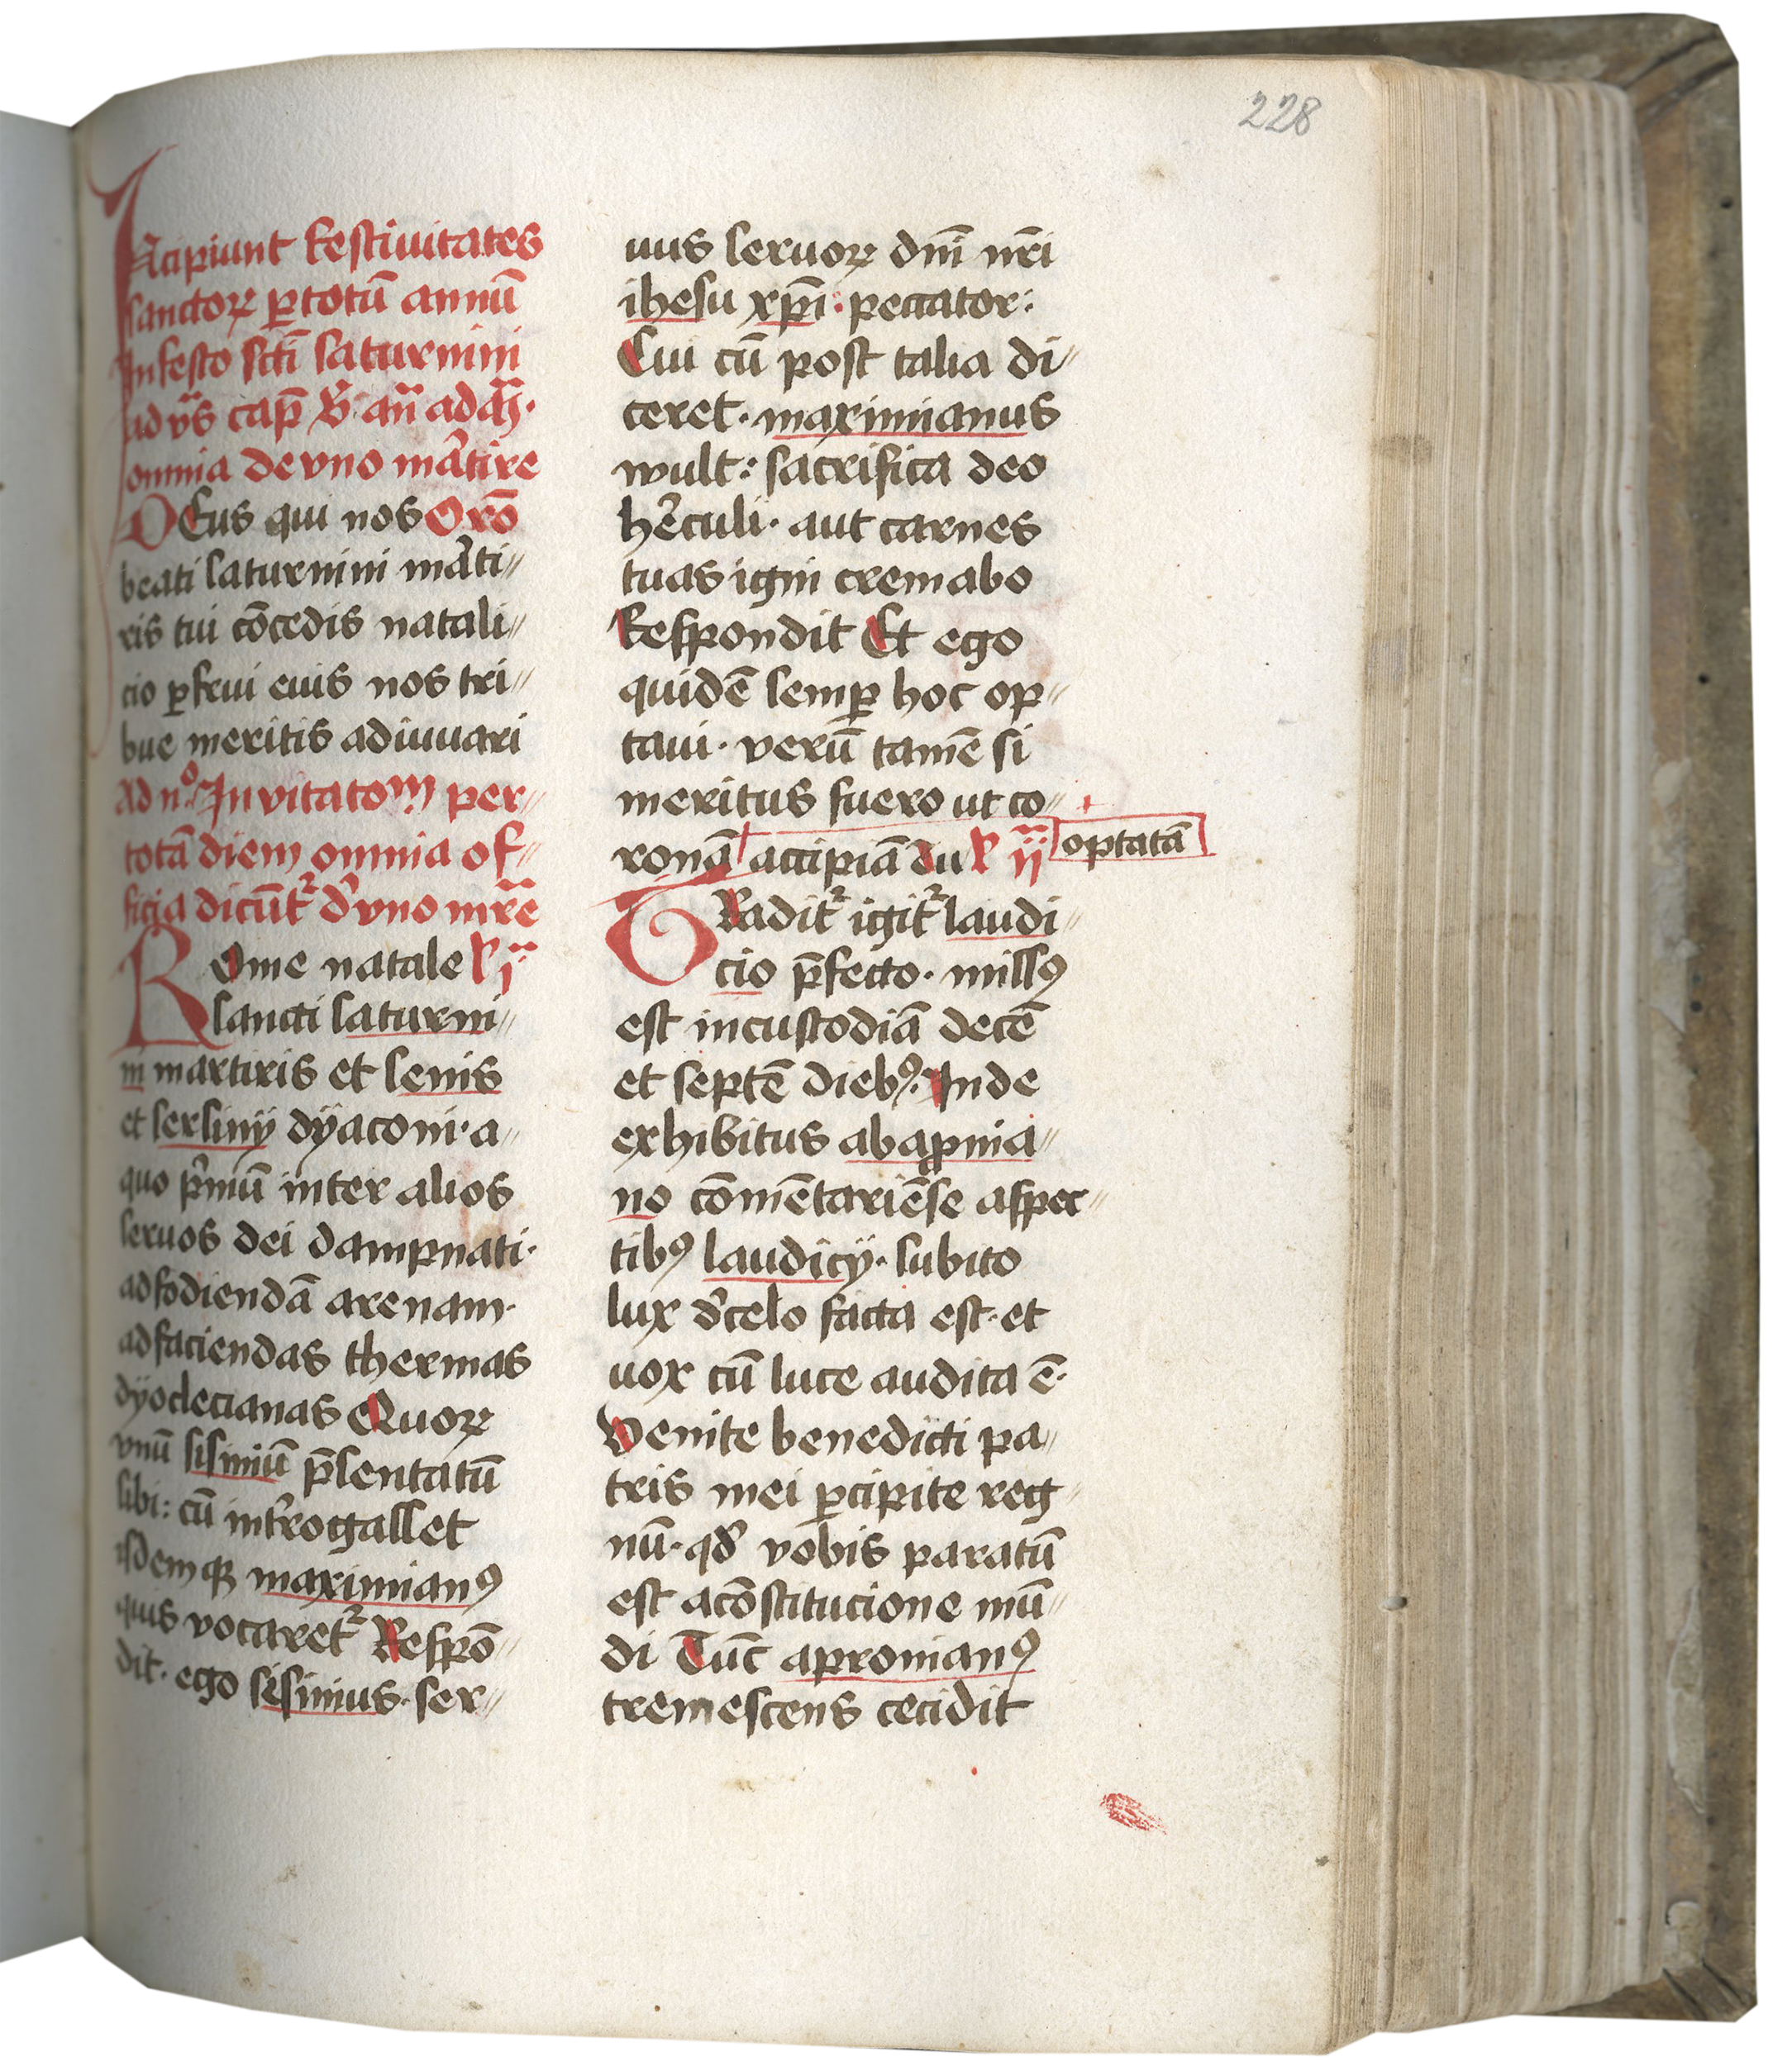 228
Incipiunt festiuitates
sanctoꝝ ꝑ totū annū
In festo scti saturnini
ad vs̄ cap̄ ℣ an̄ ad m̄
omnia de vno mr̄tire
DEus qui nos Oro̅
beati saturnini mr̄ti〃
ris tui co̅cedis natali〃
cio ꝑfrui eius nos tri〃
bue meritis adiuuari
Ad nº Inuitatom per〃
totā diem omnia of〃
ficia dicūt᷑ d̓ vno mr̄e
ROme natale ł i
sancti saturni〃
ni martiris et senis
et sersiny dÿaconi · a〃
quo p̓mū inter alios
seruos dei dampnati·
ad fodiendā arenam·
ad faciendas thermas
dÿoclecianas Quoꝝ
vnū sisiniū p̄sentatū
sibi: cū int̓rogasset
isdemqꝫ maximianꝰ
quis vocaret᷑ Respo̅〃
dit · ego sisinius · ser〃
uus seruoꝝ dnī nr̄i
ihesu xp̄i : peccator:
Cui cū post talia di〃
ceret · maximianus
wult: sacrifica deo
h̓culi · aut carnes
tuas igni cremabo
Respondit Et ego
quidē semꝑ hoc op〃
taui · verū tamē si
meritus fuero ut co〃
ronā accipiā Tu ł ii optatā
TRadit᷑ igit᷑ laudi〃
cio p̄fecto · missꝰ
est in custodiā decē
et septē diebꝰ· Inde
exhibitus ab apnia〃
no co̅mētariēse aspec〃
tibꝰ laudicÿ · subito
lux d̓ celo facta est · et
uox cū luce audita ē·
Venite benedicti pa〃
tris mei ꝑcipite reg〃
nū · qd̓ vobis paratū
est a co̅stitucione mū〃
di Tūc apronianꝰ
tremescens cecidit